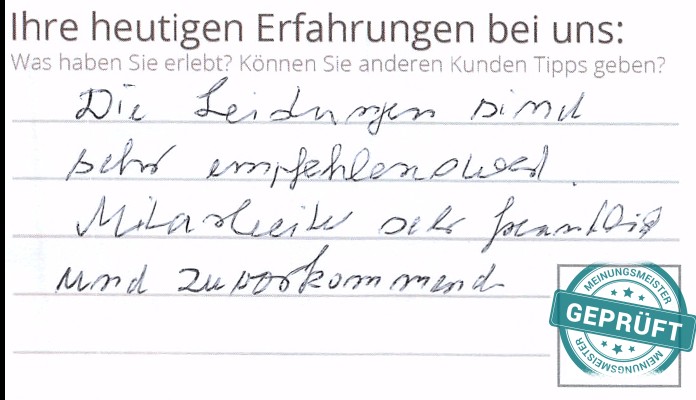 Ihre heutigen Erfahrungen bei uns:
Was haben Sie erlebt? Können Sie anderen Kunden Tipps geben?
Die Leistungen sind
sehr empfehlenswert.
Mitarbeiter sehr freundlich
und zuvorkommend
MEINUNGSMEISTER
GEPRÜFT
MEINUNGSMEISTER